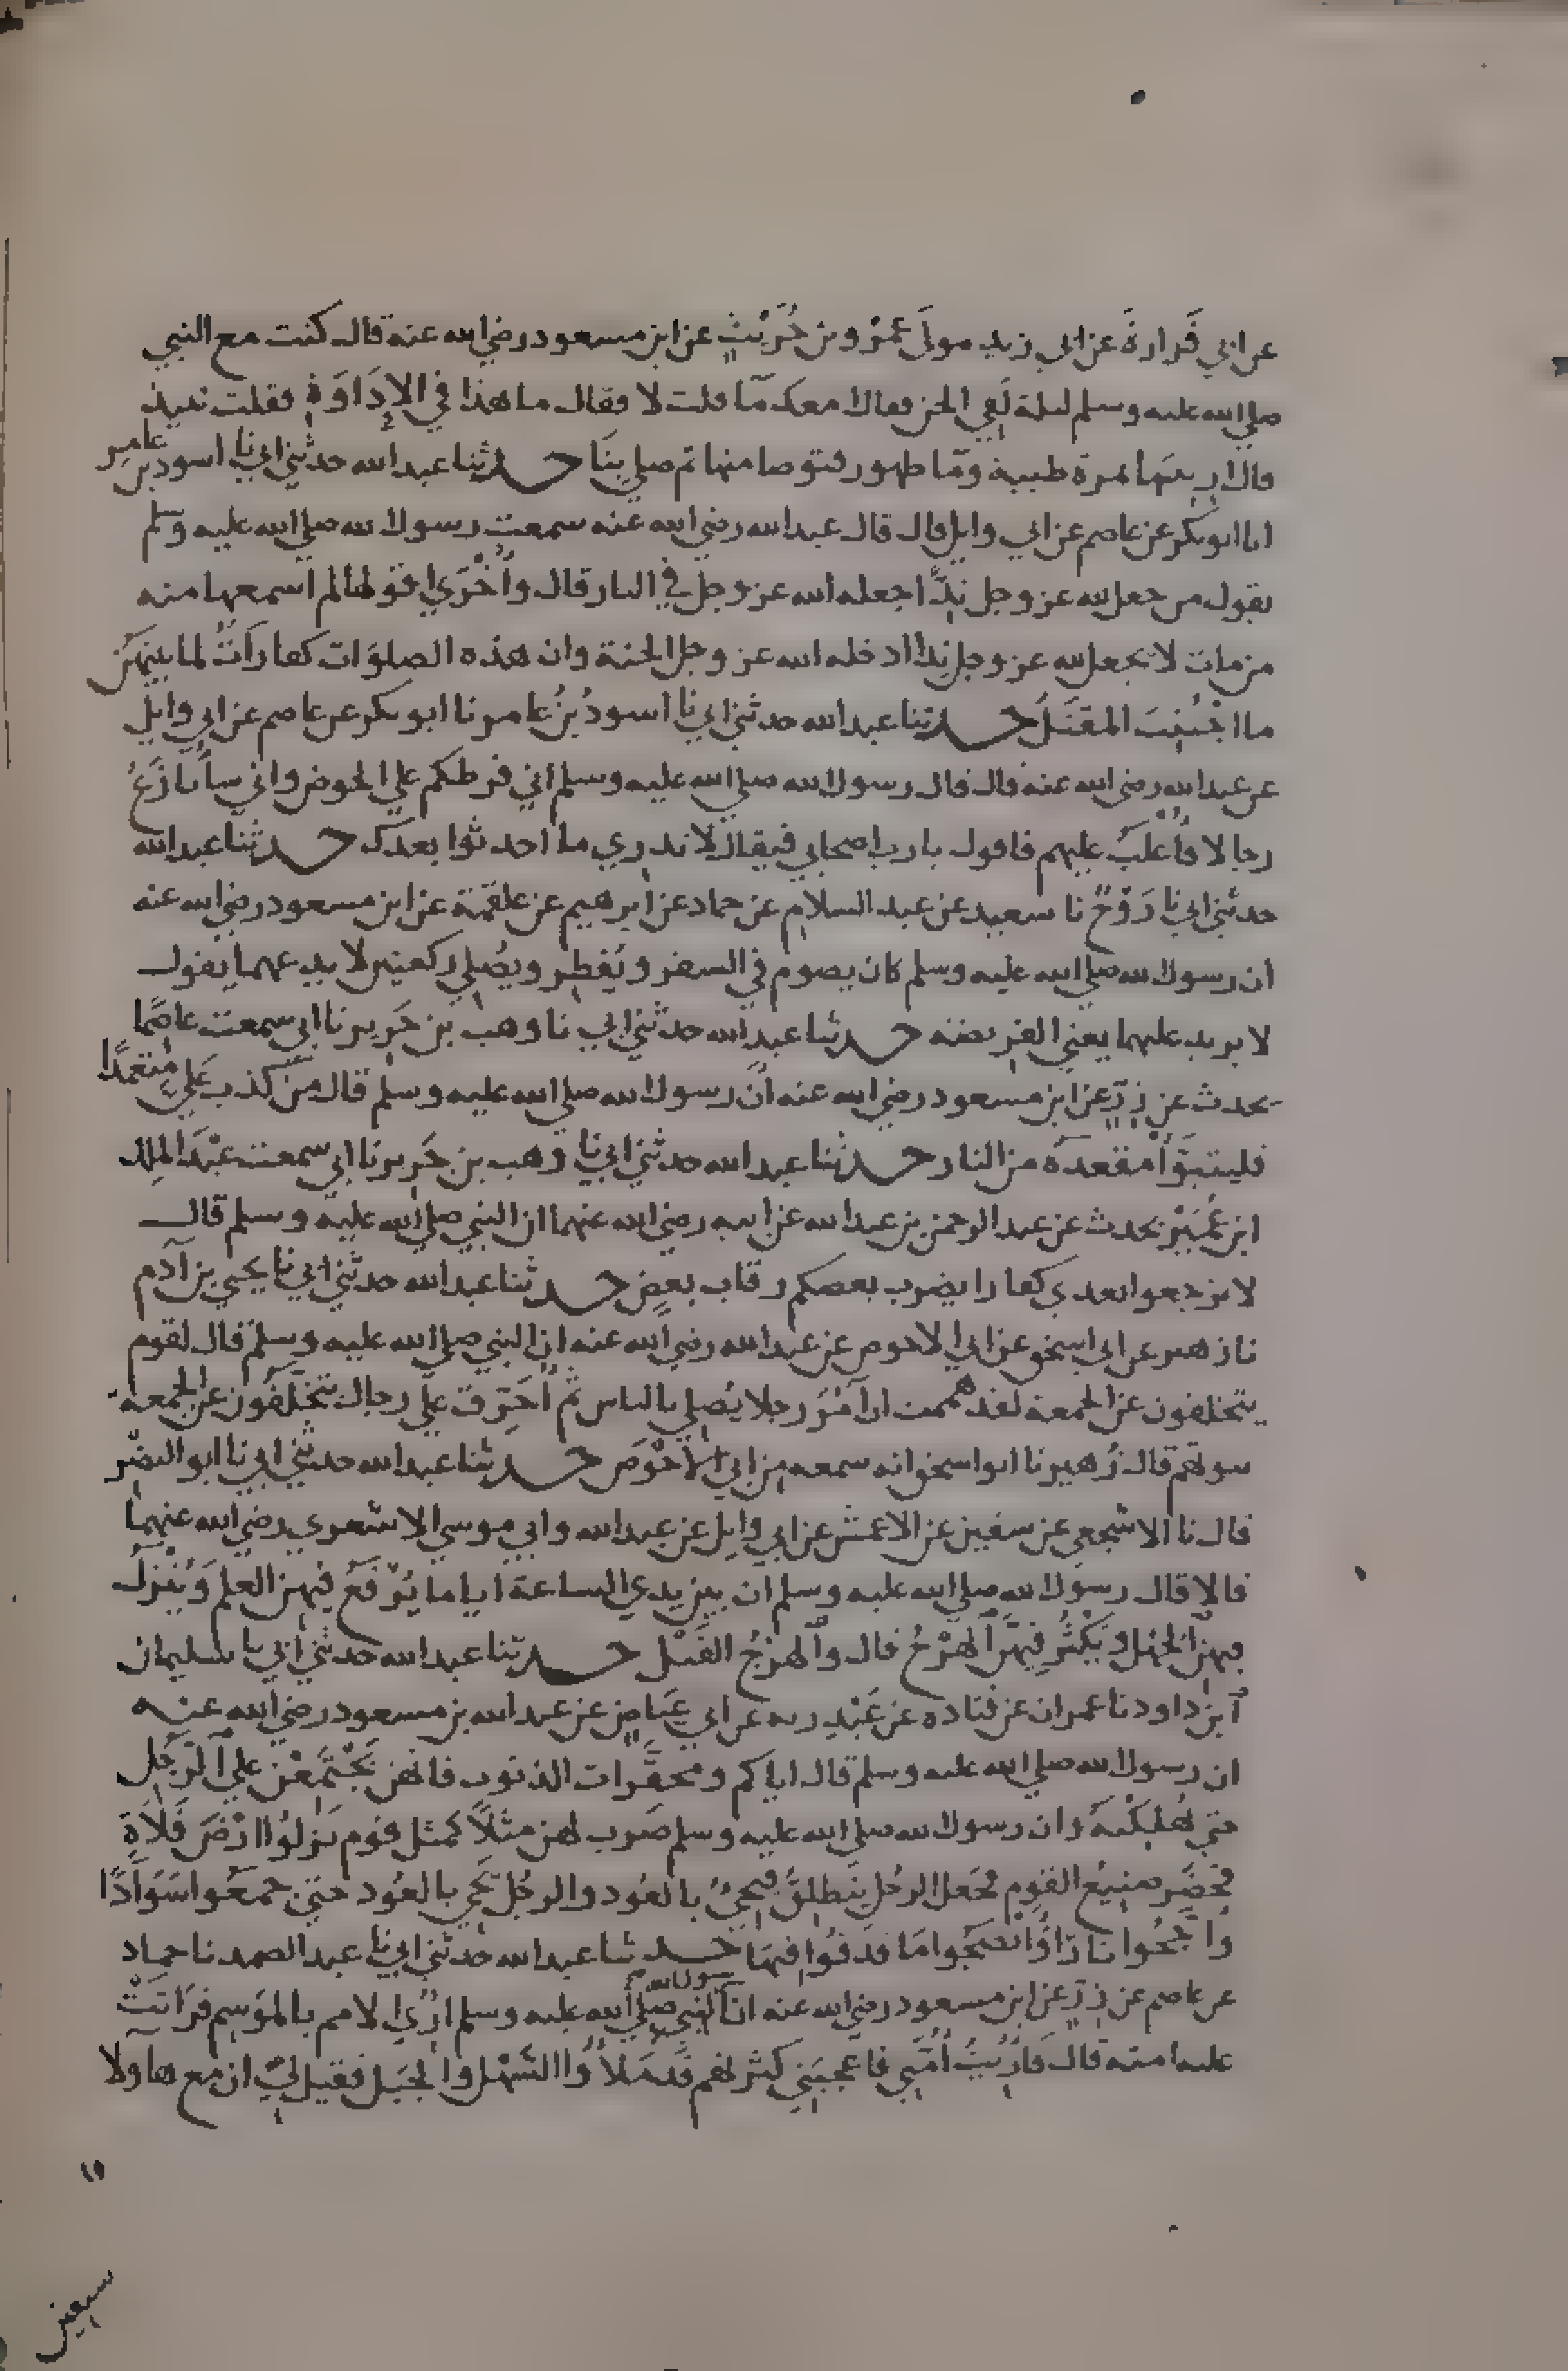 عن ابي فَزارةَ عن ابي زيد مولَى عمرو بن حُرَيْثٍ عن ابن مسعود رضي الله عنه قال كنت مع النبي
صلي الله عليه وسلم ليلة لَقي الجن فقال امعك مآ قلت لا فقال ما هذا في الإدَاوَةِ فقلت نبيذ
قال ارِنيهَا تمرة طيبة ومآ طهور فتوضا منها ثم صلي بنَا حـدثنا عبد الله حدثني ابي نا اسود بن عامر
انا ابو بكر عن عاصم عن ابي وايل قال قال عبد الله رضي الله عنه سمعت رسول الله صلي الله عليه وسلم
يقول من جعل لله عز وجل نِدًّا جعله الله عز وجل في النار قال وأُخْرَي اقولها لم اسمعها منه
من مات لا يجعل لله عز وجل نِدا ادخله الله عز وجل الجنة وان هذه الصلوَات كفارَاتٌ لما بينهنّ
ما اجْتُنِبَ المقتَلُ حـدثنا عبد الله حدثني ابي نا اسودُ بنُ عامر نا ابو بكر عن عاصم عن ابي وايل
عن عبد الله رضي الله عنه قال قال رسول الله صلي الله عليه وسلم اني فرطكم علي الحوض واني سأُنازَعُ
رجالا فأُغلَبُ عليهم فاقول يا رب اصحابي فيقال لا تدري ما احدثوا بعدك حـدثنا عبد الله
حدثني ابي نا رَوْحٌ نا سعيد عن عبد السلام عن حماد عن ابرهيم عن علقمة عن ابن مسعود رضي الله عنه
ان رسول الله صلي الله عليه وسلم كان يصوم في السفر ويُفطِر ويصُلي ركعتين لا يدعهما يقول
لا يريد عليهما يعني الفريضة حـدثنا عبد الله حدثني ابي نا وهب بن جَرِير نا ابي سمعت عاصمًا
يحدث عن زِرٍّ عن ابن مسعود رضي الله عنه انّ رسول الله صلي الله عليه وسلم قال من كذب عَلَيَّ مُتعمدًا
فليتبَوَّأْ مقعدَه من النار حـدثنا عبد الله حدثني ابي نا وهب بن جَرِير نا ابي سمعت عبْدَ الملك
ابن عُمَيْر يحدث عن عبد الرحمن بن عبد الله عن ابيه رضي الله عنهما ان النبي صلي الله عليه وسلم قال
لا ترجعوا بعدي كفارا يضرب بعضكم رقاب بعض حـدثنا عبد الله حدثني ابي نا يحيي بن آدم
نا زهير عن ابي اسحق عن ابي الاحوص عن عبد الله رضي الله عنه ان النبي صلي الله عليه وسلم قال لقوم
يتخلفون عن الجمعة لقد هممت ان آمُرَ رجلا يُصلي بالناس ثم أُحَرِّق علَي رجال يتخلّفُون عن الجمعة
بيوتهم قال زُهير نا ابو اسحق انه سمعه من ابي الأحْوَص حـدثنا عبد الله حدثني ابي نا ابو النضْر
قال نا الاشجعي عن سفين عن الاعمش عن ابي وايل عن عبد الله وابي موسي الاشعري رضي الله عنهما
قالا قال رسول الله صلي الله عليه وسلم ان بين يدي الساعة اياما يُرْفَعُ فيهن العلم وَيُنْزَلُ
فيهن الجهل ويَكْثُر فيهنّ الهَرْجُ قال والهرْجُ القَتْل حـدثنا عبد الله حدثني ابي نا سليمان
ابن داود نا عمران عن قتاده عن عَبْدِ ربه عن ابي عِيَاضٍ عن عبد الله بن مسعود رضي الله عنه
ان رسول الله صلي الله عليه وسلم قال اياكم ومحقَّرات الذنوب فانهن يَجْتَمعْنَ علي الرجُل
حتي يُهلِكْنَهُ وان رسول الله صلي الله عليه وسلم ضَرب لهن مثلاً كمثل قوم نَزلُوا ارْضَ فَلَاةٍ
فحَضَر صَنِيعُ القوم فجعَل الرجُل ينطلِقُ فيجيُ بالعُود والرجُل يَجي بالعُود حتي جمعُوا سَوَادًا
واجَّجُوا نارًا وأنضَجُوا مَا قذفُوا فيهَا حـدثنا عبد الله حدثني ابي نا عبد الصمد نا حماد
عن عاصم عن زِرٍّ عن ابن مسعود رضي الله عنه ان النبي صلي الله عليه وسلم اُرِيَ الامم بالموَسِم فرَاثَتْ
عليه امته قال فاُرِيتُ اُمَّتي فاعجبَني كثرتهم قَد مَلأُوا السَّهْل والجبَل فقيل لي ان مع هآولا
سبعين